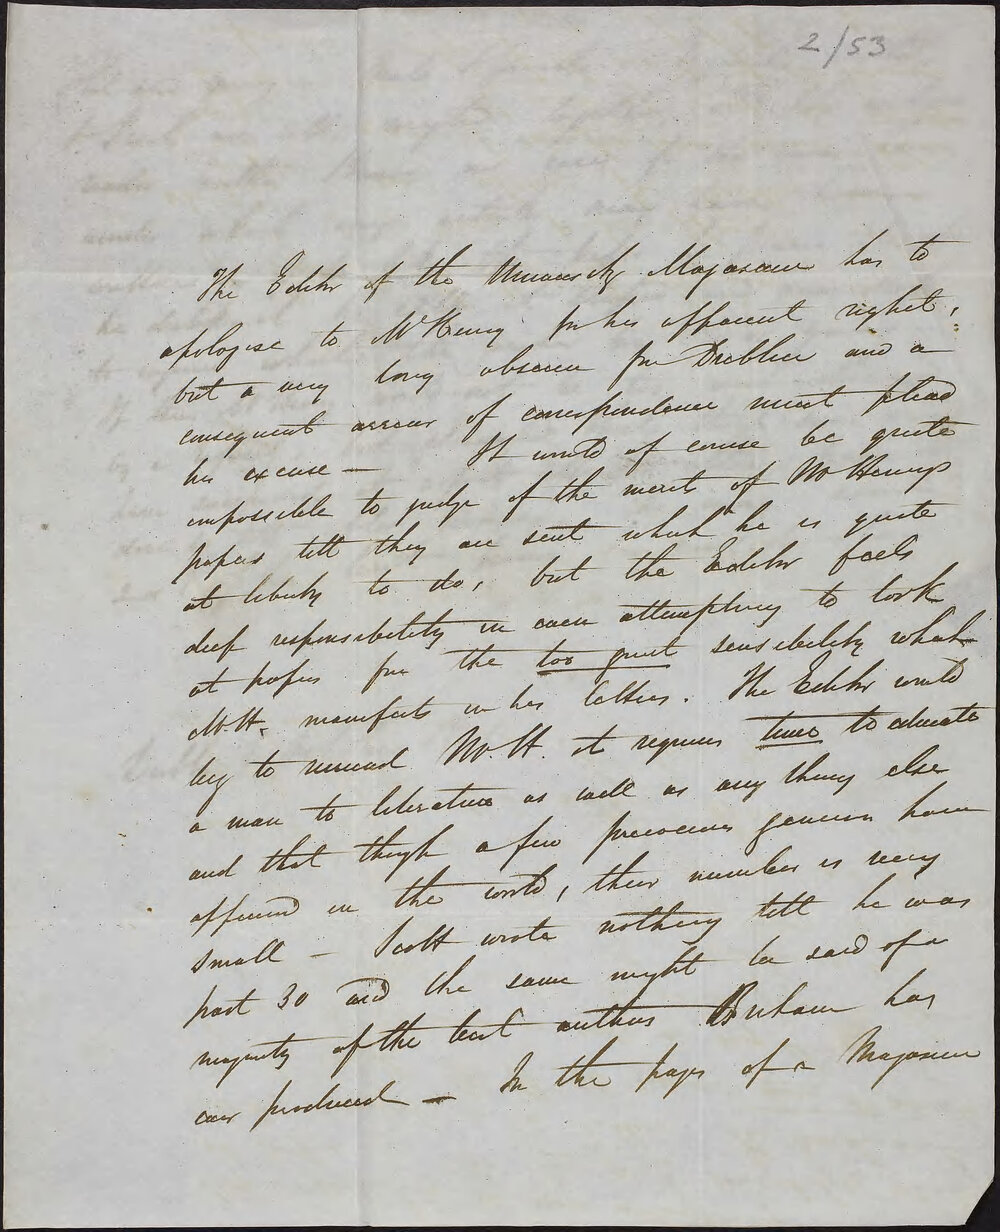 2/53
The Editor of the University Magazine has to
apologise to Mr Henry for his apparent neglect,
but a very long absence from Dublin and a
consequent arrear of correspondence must plead
his excuse — It would of course be quite
impossible to judge of the merit of Mr Henrys
papers till they are sent which he is quite
at liberty to do, but the Editor feels
deep responsibility in even attempting to look
at papers from the too great sensibility which
Mr. H. manifests in his letters. The Editor would
beg to remind Mr. H. it requires time to educate
a man to literature as well as any thing else
and that though a few precocious geniuses have
appeared in the world, their number is very
small — Scott wrote nothing till he was
past 30 and the same might be said of a
majority of the best authors Britain has
ever produced — In the pages of a Magazine